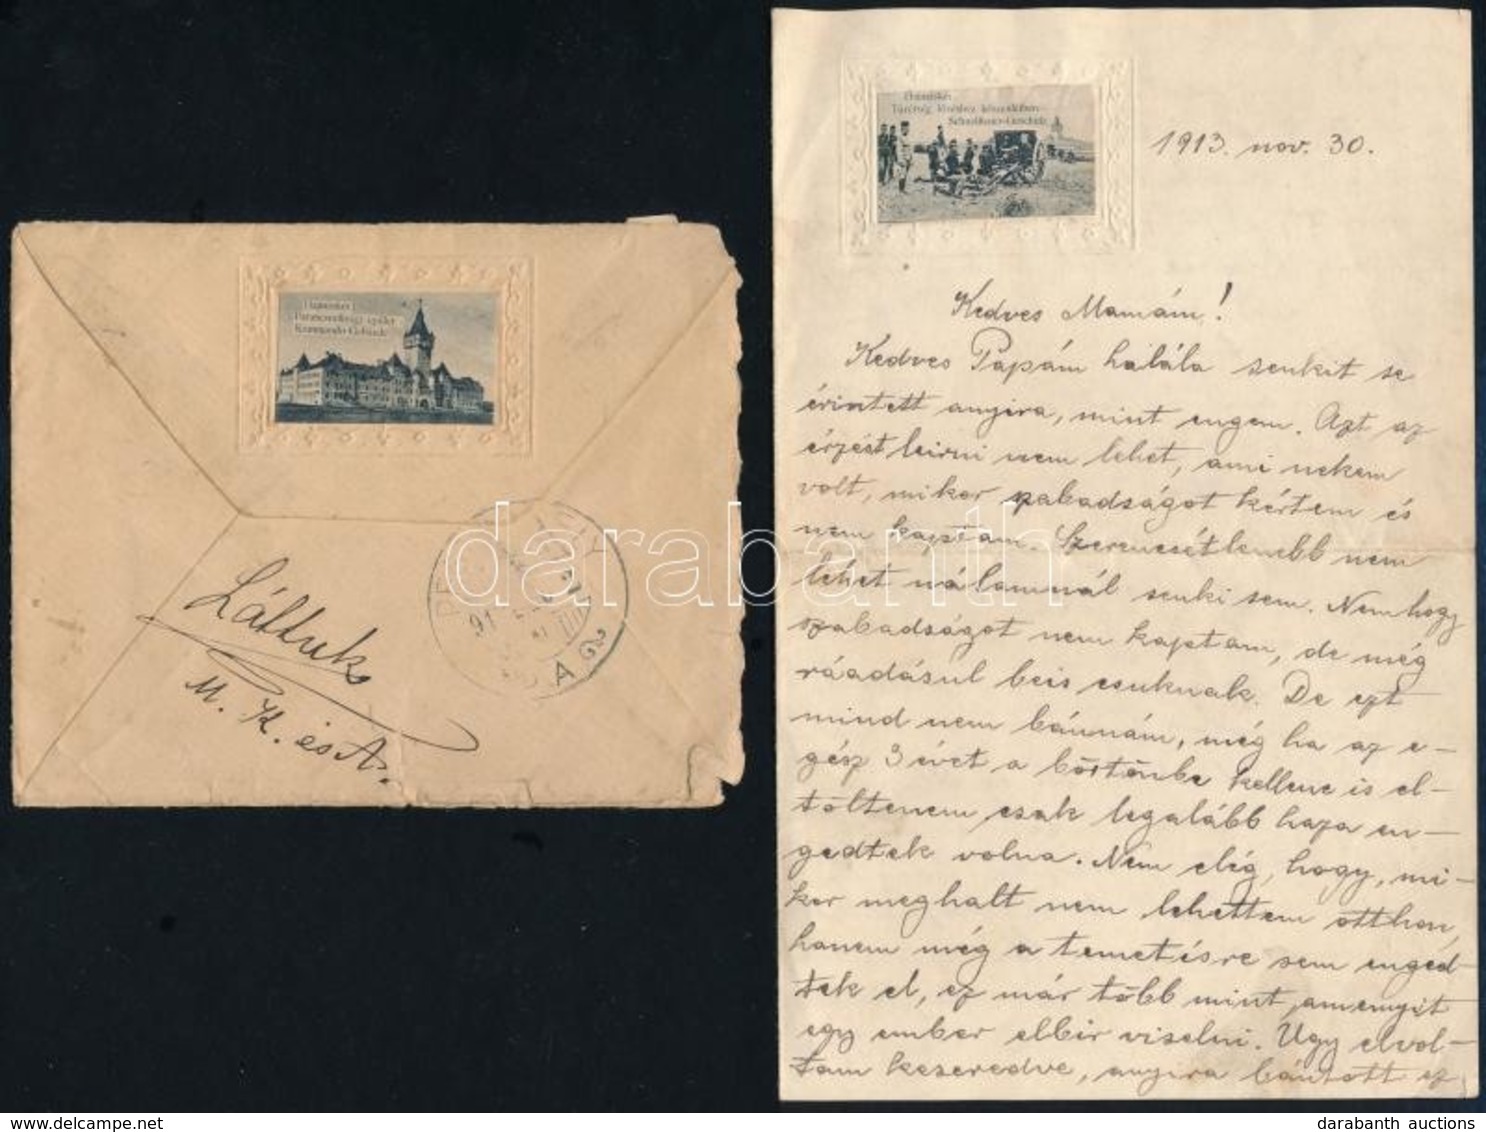 Hajmáskér
Parancsnoksági épület
Kommando-Gebäude
Láttuk
M. K. és A.
Hajmáskér
Tüzérség lövéshez készenlétben
1913. nov. 30.
Kedves Mamám!
Kedves Papám halála senkit se
érintett anyira, mint engem. Azt az
érzést leirni nem lehet, ami nekem
volt, mikor szabadságot kértem és
nem kaptam. Szerencsétlenebb nem
lehet nálamnál senki sem. Nemhogy
szabadságot nem kaptam, de még
ráadásul be is csuknak. De ezt
mind nem bánnám, még ha az e-
gész 3 évet a börtönbe kellene is el-
töltenem csak legalább haza en-
gedtek volna. Nem elég, hogy, mi-
kor meghalt nem lehettem otthon,
hanem még a temetésre sem enged-
tek el, ez már több mint amenyit
egy ember elbir viselni. Ugy elvol-
tam keseredve, anyira bántott ez
darabanth
darabanth auctions
www.delcampe.net